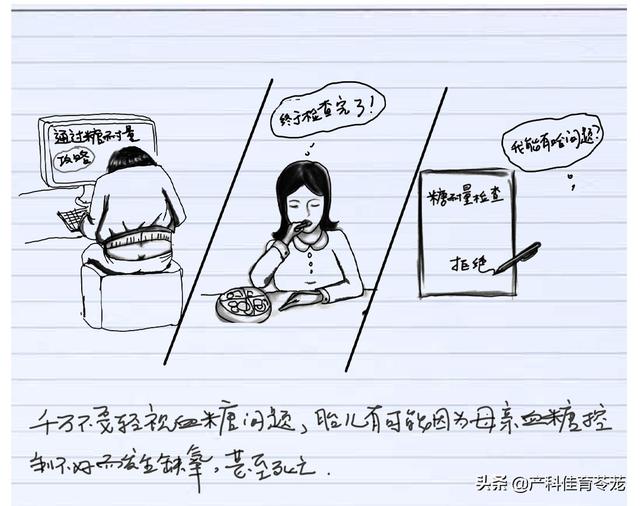 通过糖耐量
攻略
终于检查完了！
我能有啥问题?
糖耐量检查
拒绝
千万不要轻视血糖问题，胎儿有可能因为母亲血糖控
制不好而发生缺氧，甚至死亡.
头条 @产科佳育苓茏